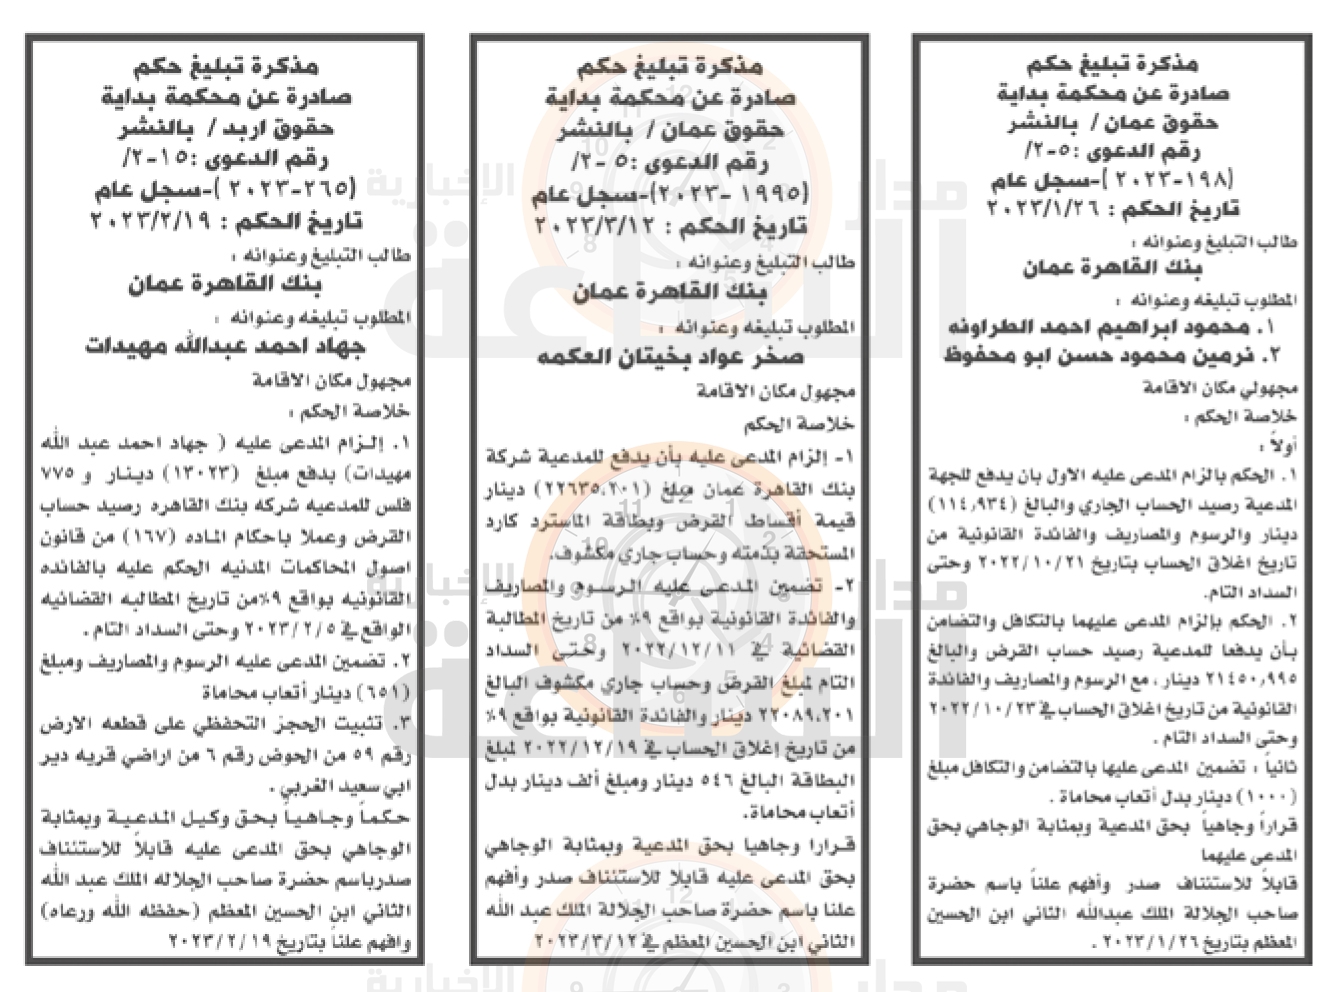 مذكرة تبليغ حكم
صادرة عن محكمة بداية
حقوق عمان / بالنشر
رقم الدعوى :٥-٢/
(١٩٨-٢٠٢٣ )-سجل عام
تاريخ الحكم : ٢٠٢٣/١/٢٦
طالب التبليغ وعنوانه :
بنك القاهرة عمان
المطلوب تبليغه وعنوانه :
١. محمود ابراهيم احمد الطراونه
٢. نرمين محمود حسن ابو محفوظ
مجهولي مكان الاقامة
خلاصة الحكم :
أولاً :
١. الحكم بالزام المدعى عليه الاول بان يدفع للجهة
المدعية رصيد الحساب الجاري والبالغ (١١٤,٩٣٤)
دينار والرسوم والمصاريف والفائدة القانونية من
تاريخ اغلاق الحساب بتاريخ ٢٠٢٢/١٠/٢١ وحتى
السداد التام.
٢. الحكم بإلزام المدعى عليهما بالتكافل والتضامن
بأن يدفعا للمدعية رصيد حساب القرض والبالغ
٢١٤٥٠,٩٩٥ دينار ، مع الرسوم والمصاريف والفائدة
القانونية من تاريخ اغلاق الحساب في ٢٠٢٢/١٠/٢٣
وحتى السداد التام .
ثانياً : تضمين المدعى عليها بالتضامن والتكافل مبلغ
(١٠٠٠) دينار بدل أتعاب محاماة .
قراراً وجاهياً بحق المدعية وبمثابة الوجاهي بحق
المدعى عليهما
قابلاً للاستئناف صدر وأفهم علناً باسم حضرة
صاحب الجلالة الملك عبدالله الثاني ابن الحسين
المعظم بتاريخ ٢٠٢٣/١/٢٦ .
مذكرة تبليغ حكم
صادرة عن محكمة بداية
حقوق عمان / بالنشر
رقم الدعوى :٥ -٢/
(١٩٩٥ -٢٠٢٣)-سجل عام
تاريخ الحكم : ٢٠٢٣/٣/١٢
طالب التبليغ وعنوانه :
بنك القاهرة عمان
المطلوب تبليغه وعنوانه :
صخر عواد بخيتان العكمه
مجهول مكان الاقامة
خلاصة الحكم
١- إلزام المدعى عليه بأن يدفع للمدعية شركة
بنك القاهرة عمان مبلغ (٢٢٦٣٥,٢٠١) دينار
قيمة أقساط القرض وبطاقة الماسترد كارد
المستحقة بذمته وحساب جاري مكشوف.
٢- تضمين المدعى عليه الرسوم والمصاريف
والفائدة القانونية بواقع ٩٪ من تاريخ المطالبة
القضائية في ٢٠٢٢/١٢/١١ وحتى السداد
التام لمبلغ القرض وحساب جاري مكشوف البالغ
٢٢٠٨٩,٢٠١ دينار والفائدة القانونية بواقع ٩٪
من تاريخ إغلاق الحساب في ٢٠٢٢/١٢/١٩ لمبلغ
البطاقة البالغ ٥٤٦ دينار ومبلغ ألف دينار بدل
أتعاب محاماة.
قرارا وجاهيا بحق المدعية وبمثابة الوجاهي
بحق المدعى عليه قابلا للاستئناف صدر وأفهم
علنا باسم حضرة صاحب الجلالة الملك عبد الله
الثاني ابن الحسين المعظم في ٢٠٢٣/٣/١٢
مذكرة تبليغ حكم
صادرة عن محكمة بداية
حقوق اربد / بالنشر
رقم الدعوى :١٥-٢/
(٢٦٥-٢٠٢٣ )-سجل عام
تاريخ الحكم : ٢٠٢٣/٢/١٩
طالب التبليغ وعنوانه :
بنك القاهرة عمان
المطلوب تبليغه وعنوانه :
جهاد احمد عبدالله مهيدات
مجهول مكان الاقامة
خلاصة الحكم :
١. إلزام المدعى عليه ( جهاد احمد عبد الله
مهيدات) بدفع مبلغ (١٣٠٢٣) دينار و ٧٧٥
فلس للمدعيه شركه بنك القاهره رصيد حساب
القرض وعملا باحكام الماده (١٦٧) من قانون
اصول المحاكمات المدنيه الحكم عليه بالفائده
القانونيه بواقع ٩٪من تاريخ المطالبه القضائيه
الواقع في ٢٠٢٣/٢/٥ وحتى السداد التام .
٢. تضمين المدعى عليه الرسوم والمصاريف ومبلغ
(٦٥١) دينار أتعاب محاماة
٣. تثبيت الحجز التحفظي على قطعه الارض
رقم ٥٩ من الحوض رقم ٦ من اراضي قريه دير
ابي سعيد الغربي .
حكماً وجاهياً بحق وكيل المدعية وبمثابة
الوجاهي بحق المدعى عليه قابلاً للاستئناف
صدرباسم حضرة صاحب الجلاله الملك عبد الله
الثاني ابن الحسين المعظم (حفظه الله ورعاه)
وافهم علناً بتاريخ ٢٠٢٣/٢/١٩
مدار الساعة الإخبارية
مدار الساعة الإخبارية